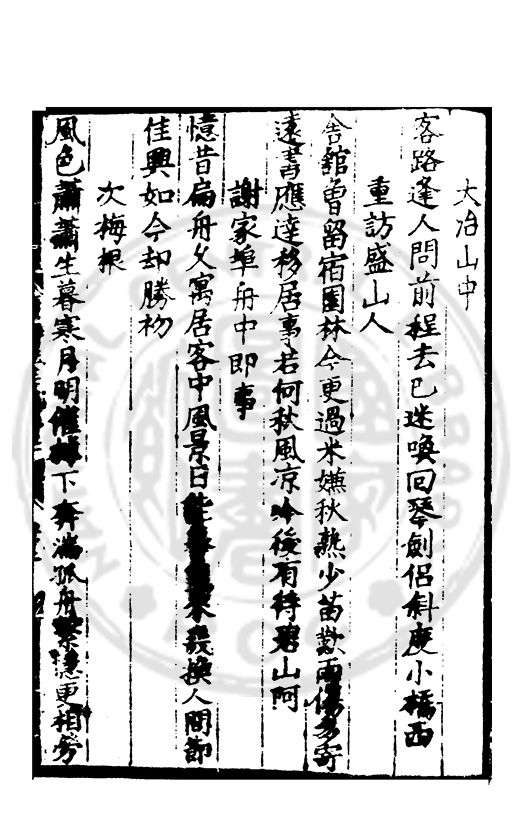 大冶山中
客路逢人問前程去已迷喚回琴劍侶斜度小橋西
重訪盛山人
舍舘曽留宿園林今更過米嫌秋熟少苗歎雨傷多寄
遠書應達移居事若何秋風凉冷後有待碧山阿
謝家埠舟中即事
憶昔扁舟久寓居客中風景日 幾換人間節
佳興如今却勝初
次梅根
風色蕭蕭生暮寒月明催 下奔湍孤舟繫穩更相旁